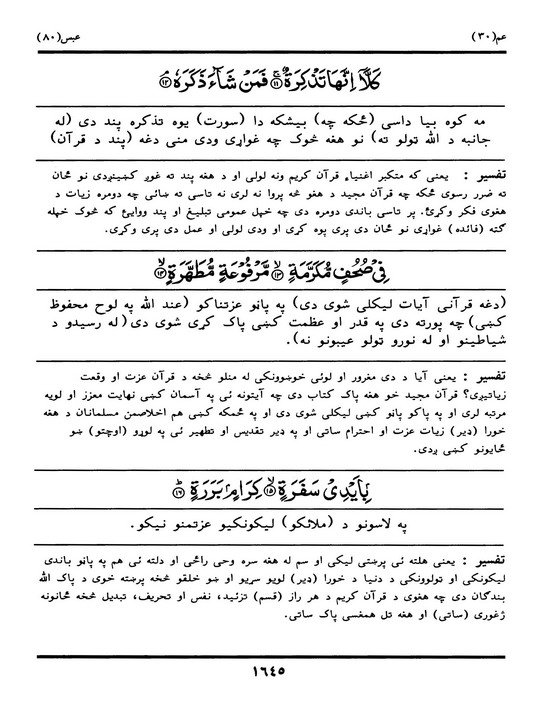 عم(٣٠)
عبس(٨٠)
كَلَّآ اِنَّهَا تَذْكِرَةٌ ۚ﴿١١﴾ فَمَنْ شَآءَ ذَكَرَهٗ ۘ﴿١٢﴾
مه کوه بيا داسې (ځکه چه) بيشکه دا (سورت) يوه تذکره پند دی (له
جانبه د الله ټولو ته) نو هغه څوک چه غواړي ودې مني دغه (پند د قرآن)
تفسير : يعنې که متکبر اغنياء قرآن کريم ونه لولي او د هغه پند ته غوږ کښېنږدي نو ځان
ته ضرر رسوي ځکه چه قرآن مجيد د هغو څه پروا نه لري نه تاسې ته ښائي چه دومره زيات د
هغوی فکر وکړئ. پر تاسې باندې دومره دی چه خپل عمومي تبليغ او پند ووايئ که څوک خپله
گټه (فائده) غواړي نو ځان دې پرې پوه کړي او ودې لولي او عمل دې پرې وکړي.
فِيْ صُحُفٍ مُّكَرَّمَةٍ ۙ﴿١٣﴾ مَّرْفُوْعَةٍ مُّطَهَّرَةٍ ۙ﴿١٤﴾
(دغه قرآني آيات ليکلي شوي دي) په پاڼو عزتناکو (عند الله په لوح محفوظ
کښې) چه پورته دي په قدر او عظمت کښې پاک کړي شوي دي( له رسيدو د
شياطينو او له نورو ټولو عيبونو نه).
تفسير : يعنې آيا د دې مغرور او لوئي خوښوونکي له منلو څخه د قرآن عزت او وقعت
زياتيږي؟ قرآن مجيد خو هغه پاک کتاب دی چه آيتونه ئې په آسمان کښې نهايت معزز او لويه
مرتبه لري او په پاکو پاڼو کښې ليکلي شوي دي او په ځمکه کښې هم اخلاصمن مسلمانان د هغه
خورا (ډير) زيات عزت او احترام ساتي او په ډير تقديس او تطهير ئې په لوړو (اوچتو) ښو
ځايونو کښې ږدي.
بِاَيْدِيْ سَفَرَةٍ ۙ﴿١٥﴾ كِرَامٍۭ بَرَرَةٍ ؕ﴿١٦﴾
په لاسونو د (ملائکو) ليکونکيو عزتمنو نيکو.
تفسير : يعنې هلته ئې پرښتې ليکي او سم له هغه سره وحې راځي او دلته ئې هم په پاڼو باندې
ليکونکي او ټولوونکي د دنيا د خورا (ډير) لويو سړيو او ښو خلقو څخه پرښته خوی د پاک الله
بندگان دي چه هغوی د قرآن کريم د هر راز (قسم) تزئيد، نقس او تحريف، تبديل څخه ځانونه
ژغوري (ساتي) او هغه تل همغسې پاک ساتي.
١٦٤٥